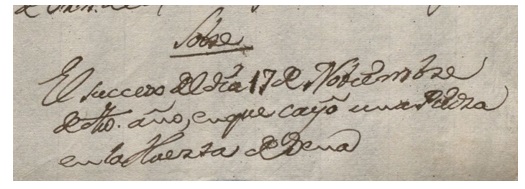 Sobre
El succeso del día 17 de Nobiembre
de dho. año, en que cayó una Piedra
en la Huerta de Sena